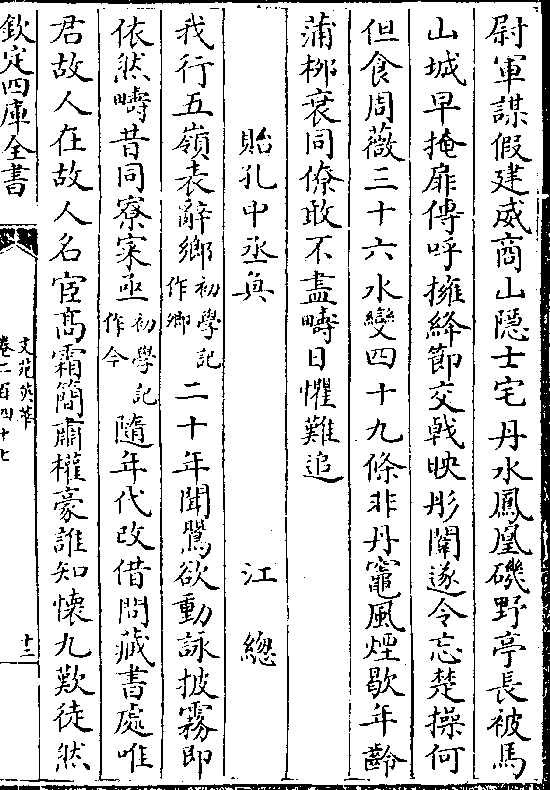 尉軍謀假建威商山隱士宅丹水鳳凰磯野亭長被馬
山城早掩扉傳呼擁絳節交戟映彤闈遂令忘楚操何
但食周薇三十六水變四十九條非丹竈風煙歇年齡
蒲栁衰同僚敢不盡疇日懼難追
貽孔中丞奐 江總
我行五嶺表辭鄉初學記作鄉二十年聞鶯欲動詠披霧即
依然疇昔同寮寀亟初學記作今隨年代改借問藏書處唯
君故人在故人名宦髙霜簡肅權豪誰知懷九歎徒然
欽定四庫全書
文苑英華
卷二百四十七
十三